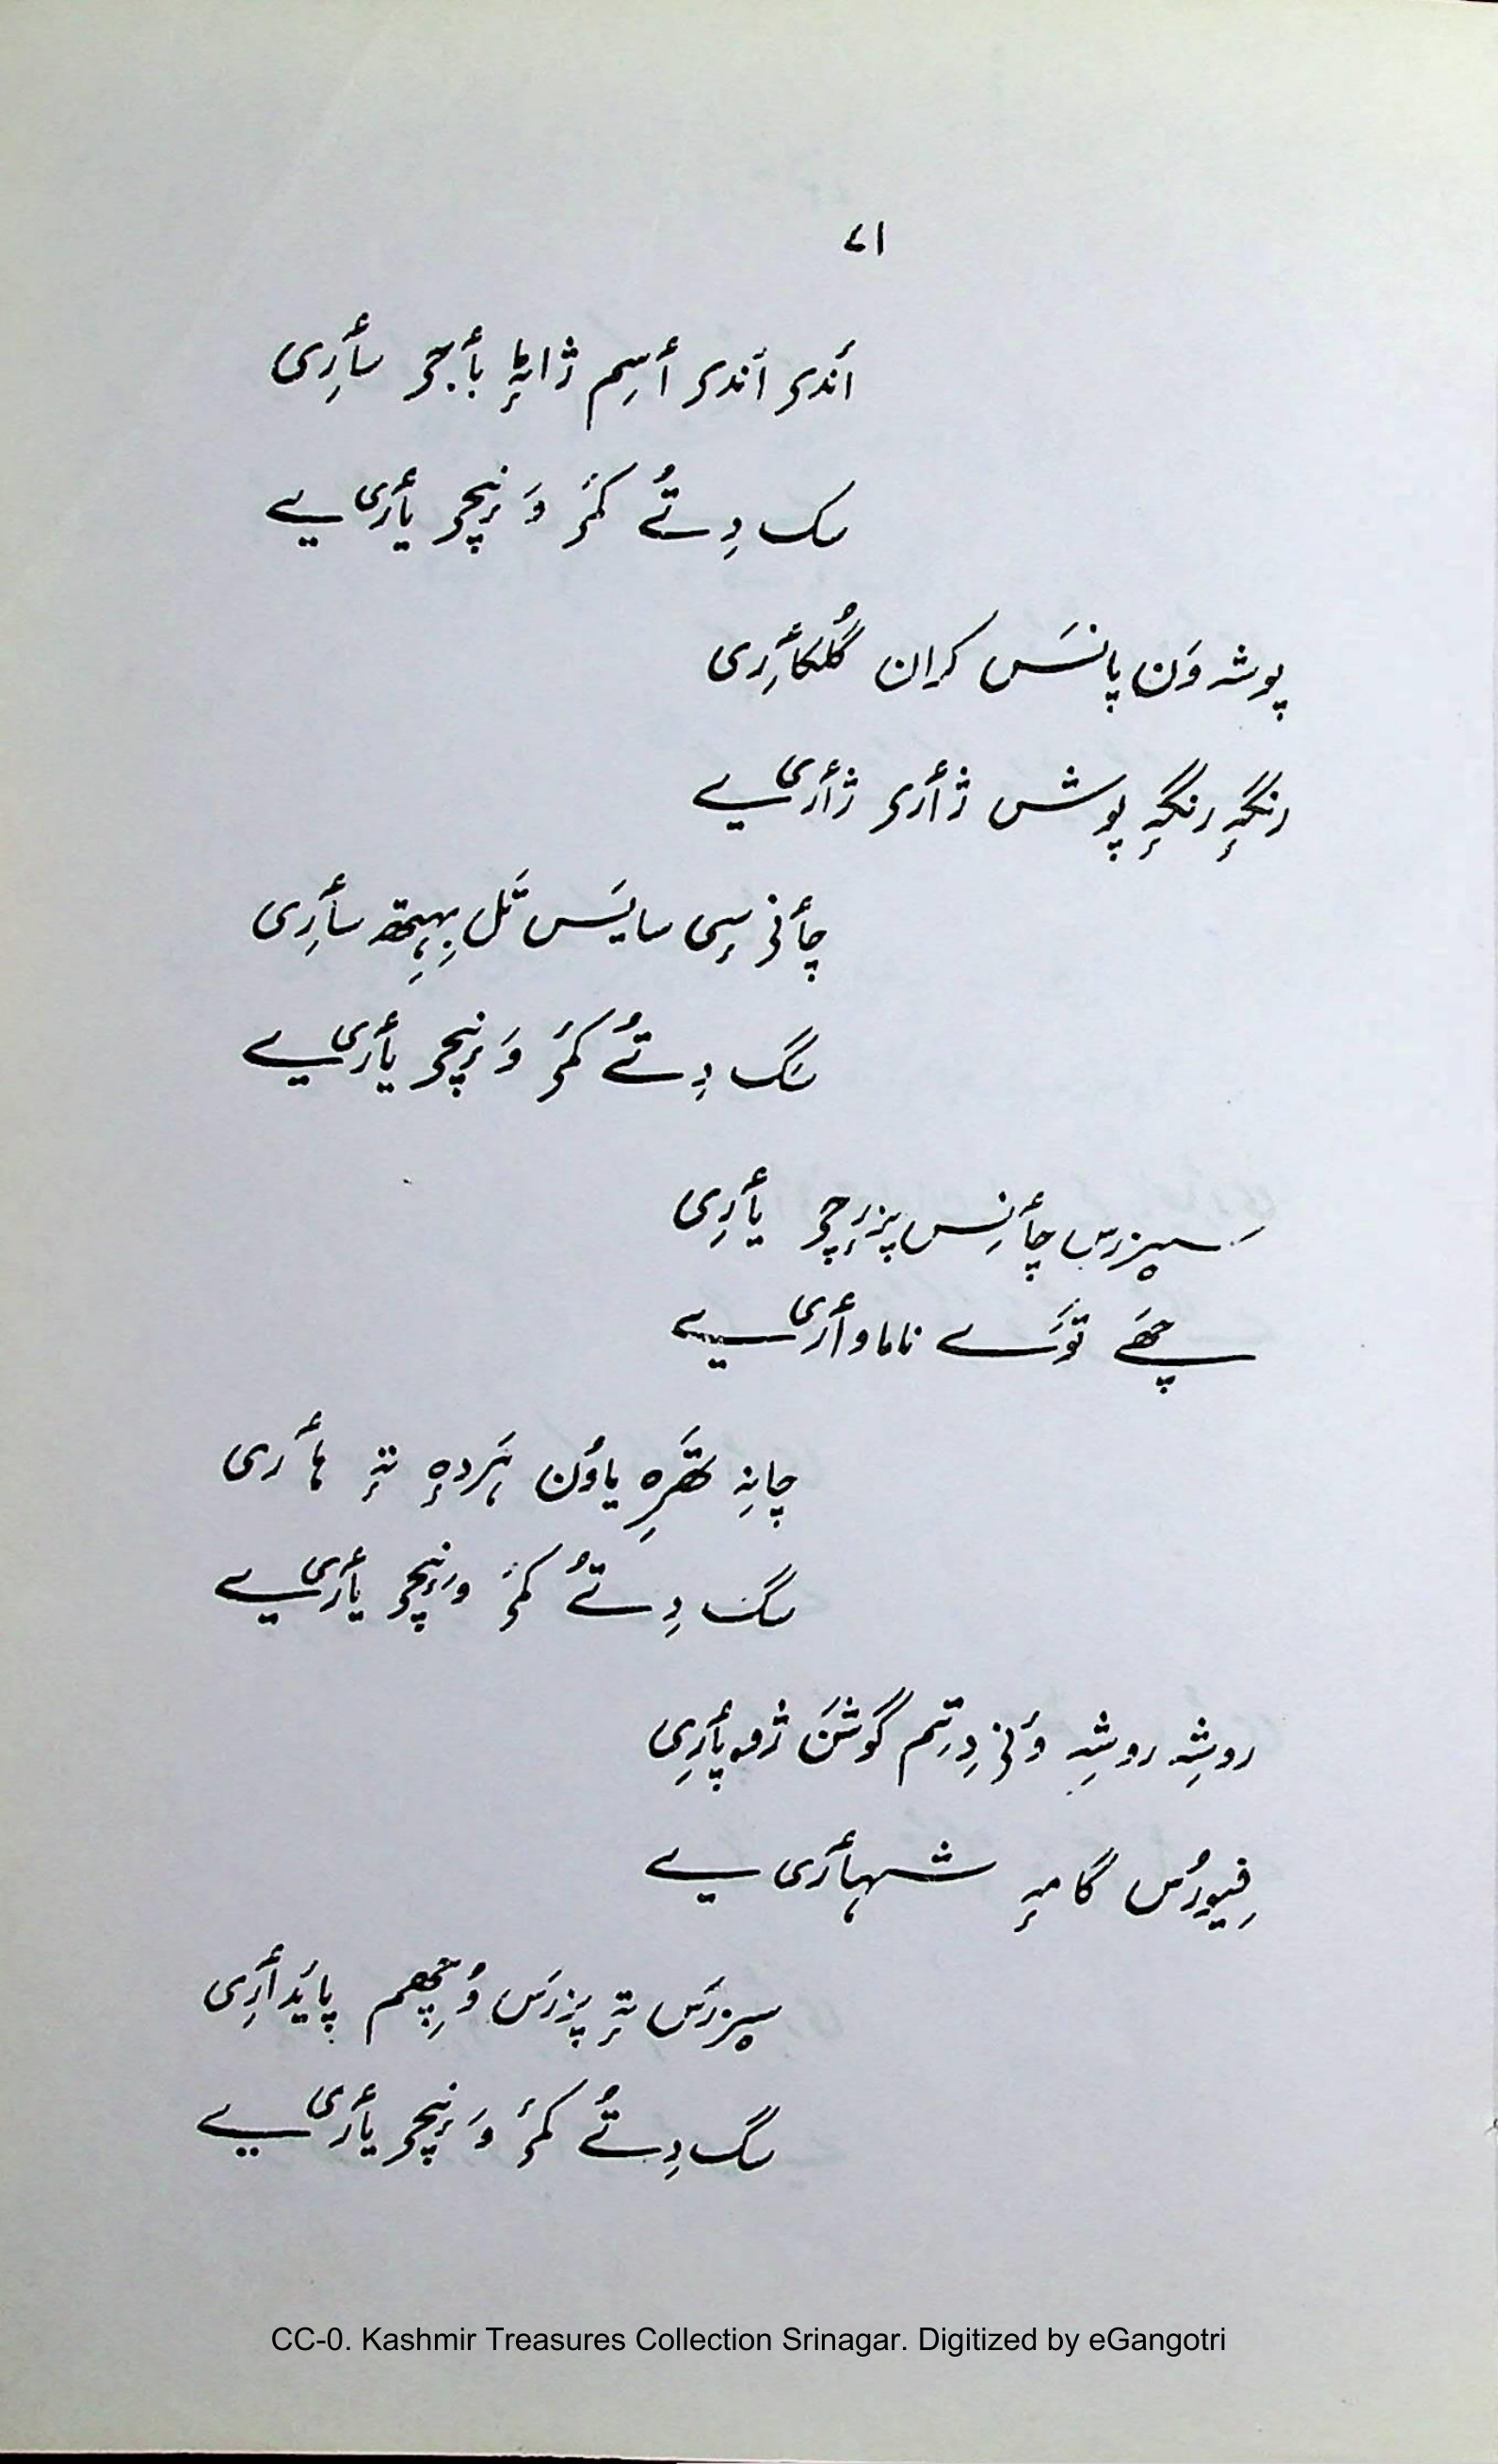 ۷۱
أندرۍ أندرۍ أسِم ژاٹہٕ بأجۍ سأرِی
سک دِتُے کمۍ وَرنیچہِ یأرۍ یے
پوشہ وَن پانَس کران گُلکأرِی
رنگہٕ رنگہٕ پوش ژأرۍ ژأرۍ یے
چأنۍ سٕی سایَس تَل بِہِتھ سأرِی
سَگ دِتُے کمۍ وَرنیچہِ یأرۍ یے
سیزرس چأنِس پزرٕچہِ یأرِی
چھَے توَے ناماوأرۍ یے
چانہِ تھَرِ یاوُن ہَردہٕ تہٕ ہأری
سگ دِتُے کمۍ وَرنیچہِ یأرۍ یے
روشہِ روشہِ وَنۍ دِتِم گوشَن ژوپأرِی
فِیورُس گامہٕ شہأرۍ یے
سیزرَس تہٕ پزرَس وُچھِم پایدأرِی
سگ دِتُے کمۍ وَرنیچہِ یأرۍ یے
CC-0. Kashmir Treasures Collection Srinagar. Digitized by eGangotri